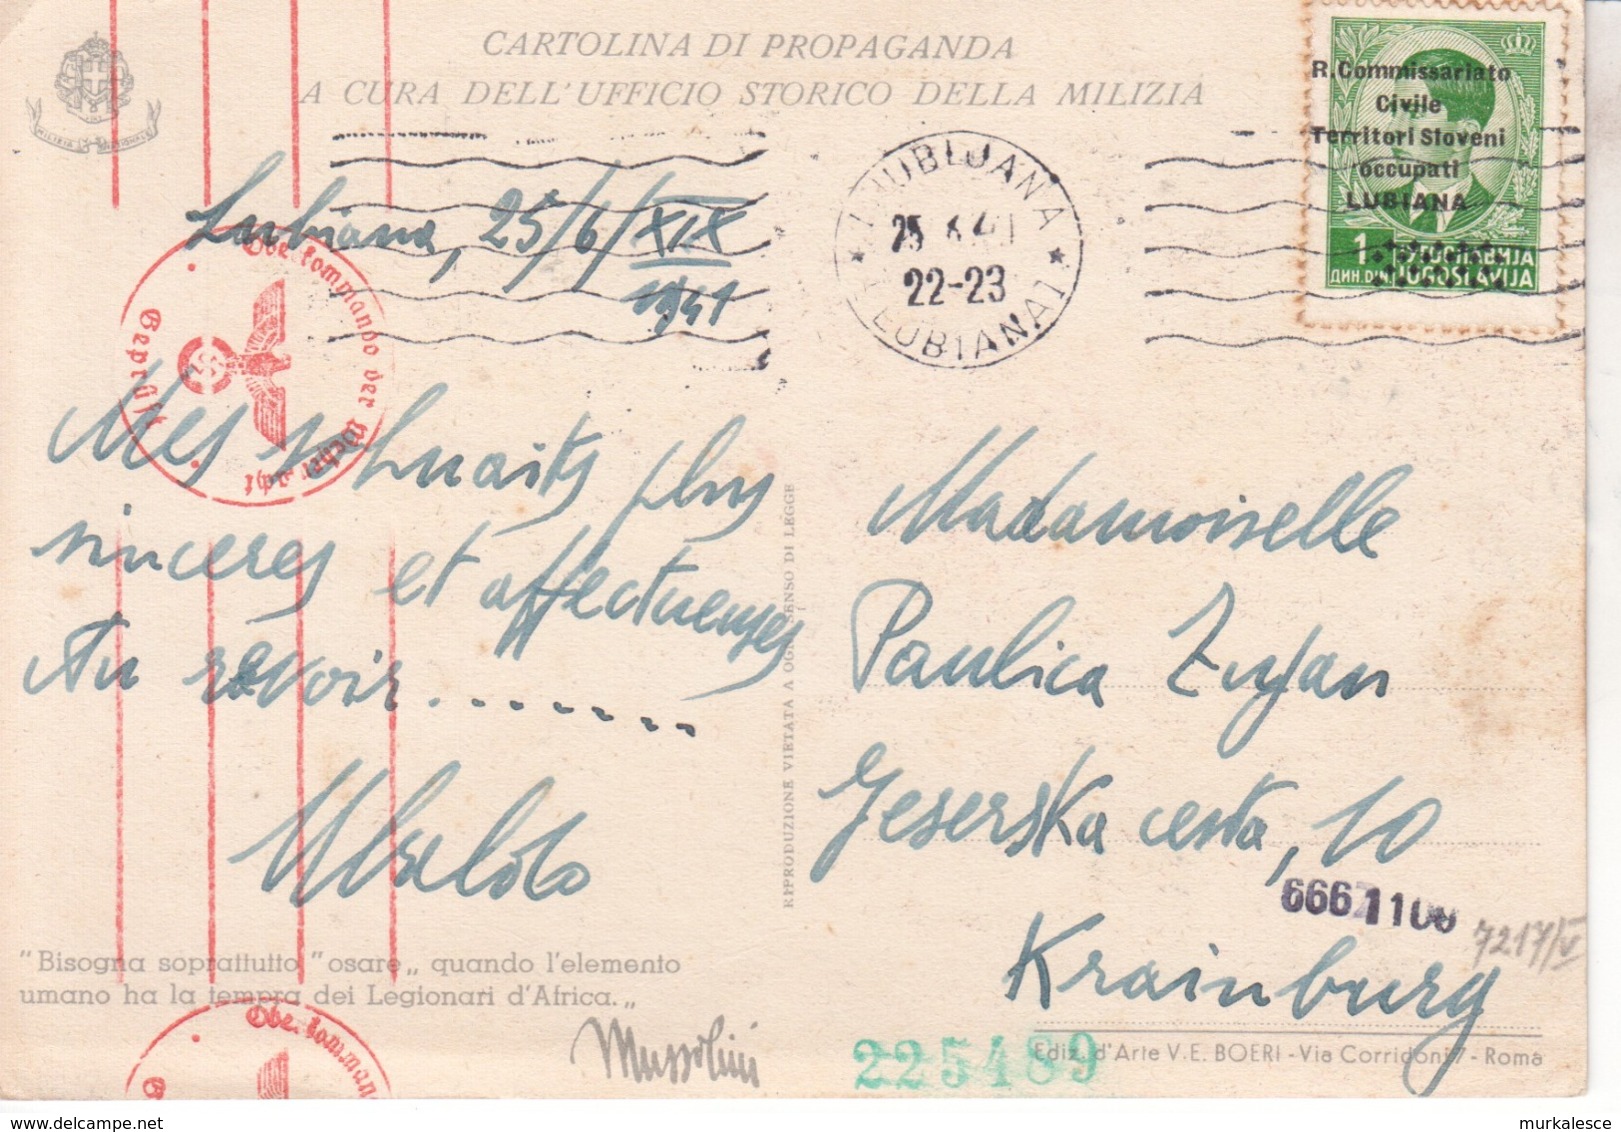 CARTOLINA DI PROPAGANDA
A CURA DELL'UFFICIO STORICO DELLA MILIZIA
MILIZIA NAZIONALE
R. Commissariato
Civile
Territori Sloveni
occupati
LUBIANA
1 ЈУГОСЛАВИЈА
ДИН. DIN. JUGOSLAVIJA
LJUBLJANA 1
25
22-23
LUBIANA 1
Lubiana, 25/6/XIX
1941
Oberkommando der Wehrmacht
Geprüft
Mes souhaits plus
sinceres et affectueuses
Au revoir........
REPRODUZIONE VIETATA A OGNI SENSO DI LEGGE
Madamoiselle
Paulica Zupan
Jeserska cesta, 10
Krainburg
6667 1100
7217/V
"Bisogna soprattutto "osare„ quando l'elemento
umano ha la tempra dei Legionari d'Africa.„
Mussolini
225489
Ediz. d'Arte V. E. BOERI - Via Corridoni 7 - Roma
Oberkommando
delcampe.net
murkalesce